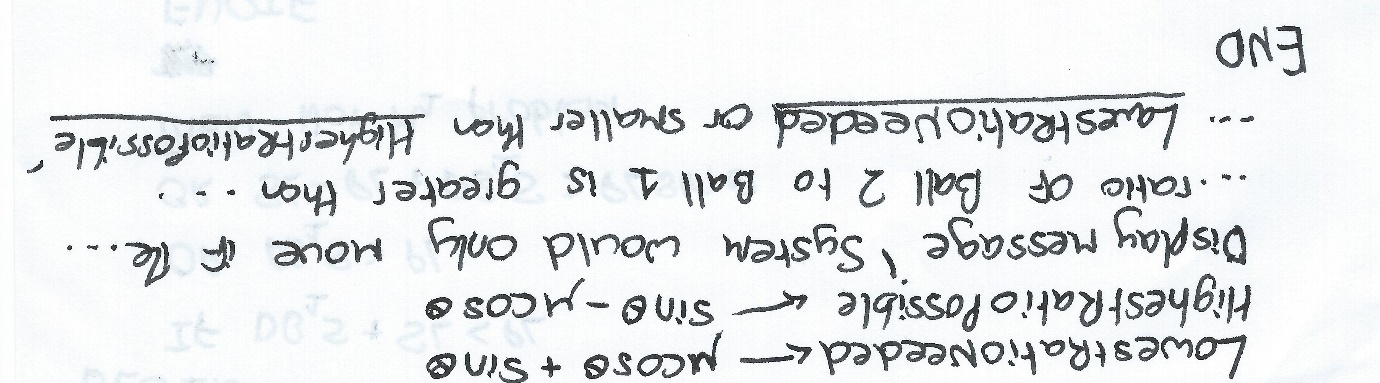 LowestRatioNeeded ← μcosθ + sinθ
HighestRatioPossible ← sinθ - μcosθ
Display message 'System would only move if the...
...ratio of Ball 2 to Ball 1 is greater than ...
... LowestRatioNeeded or smaller than HighestRatioPossible'
END